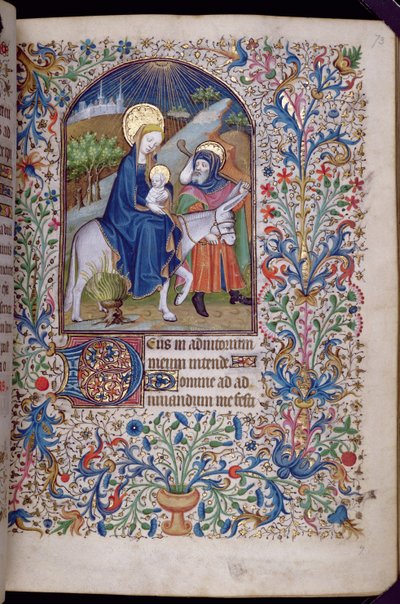 73
Deus in adiutorium
meum intende
Domine ad ad
iuuandum me festi